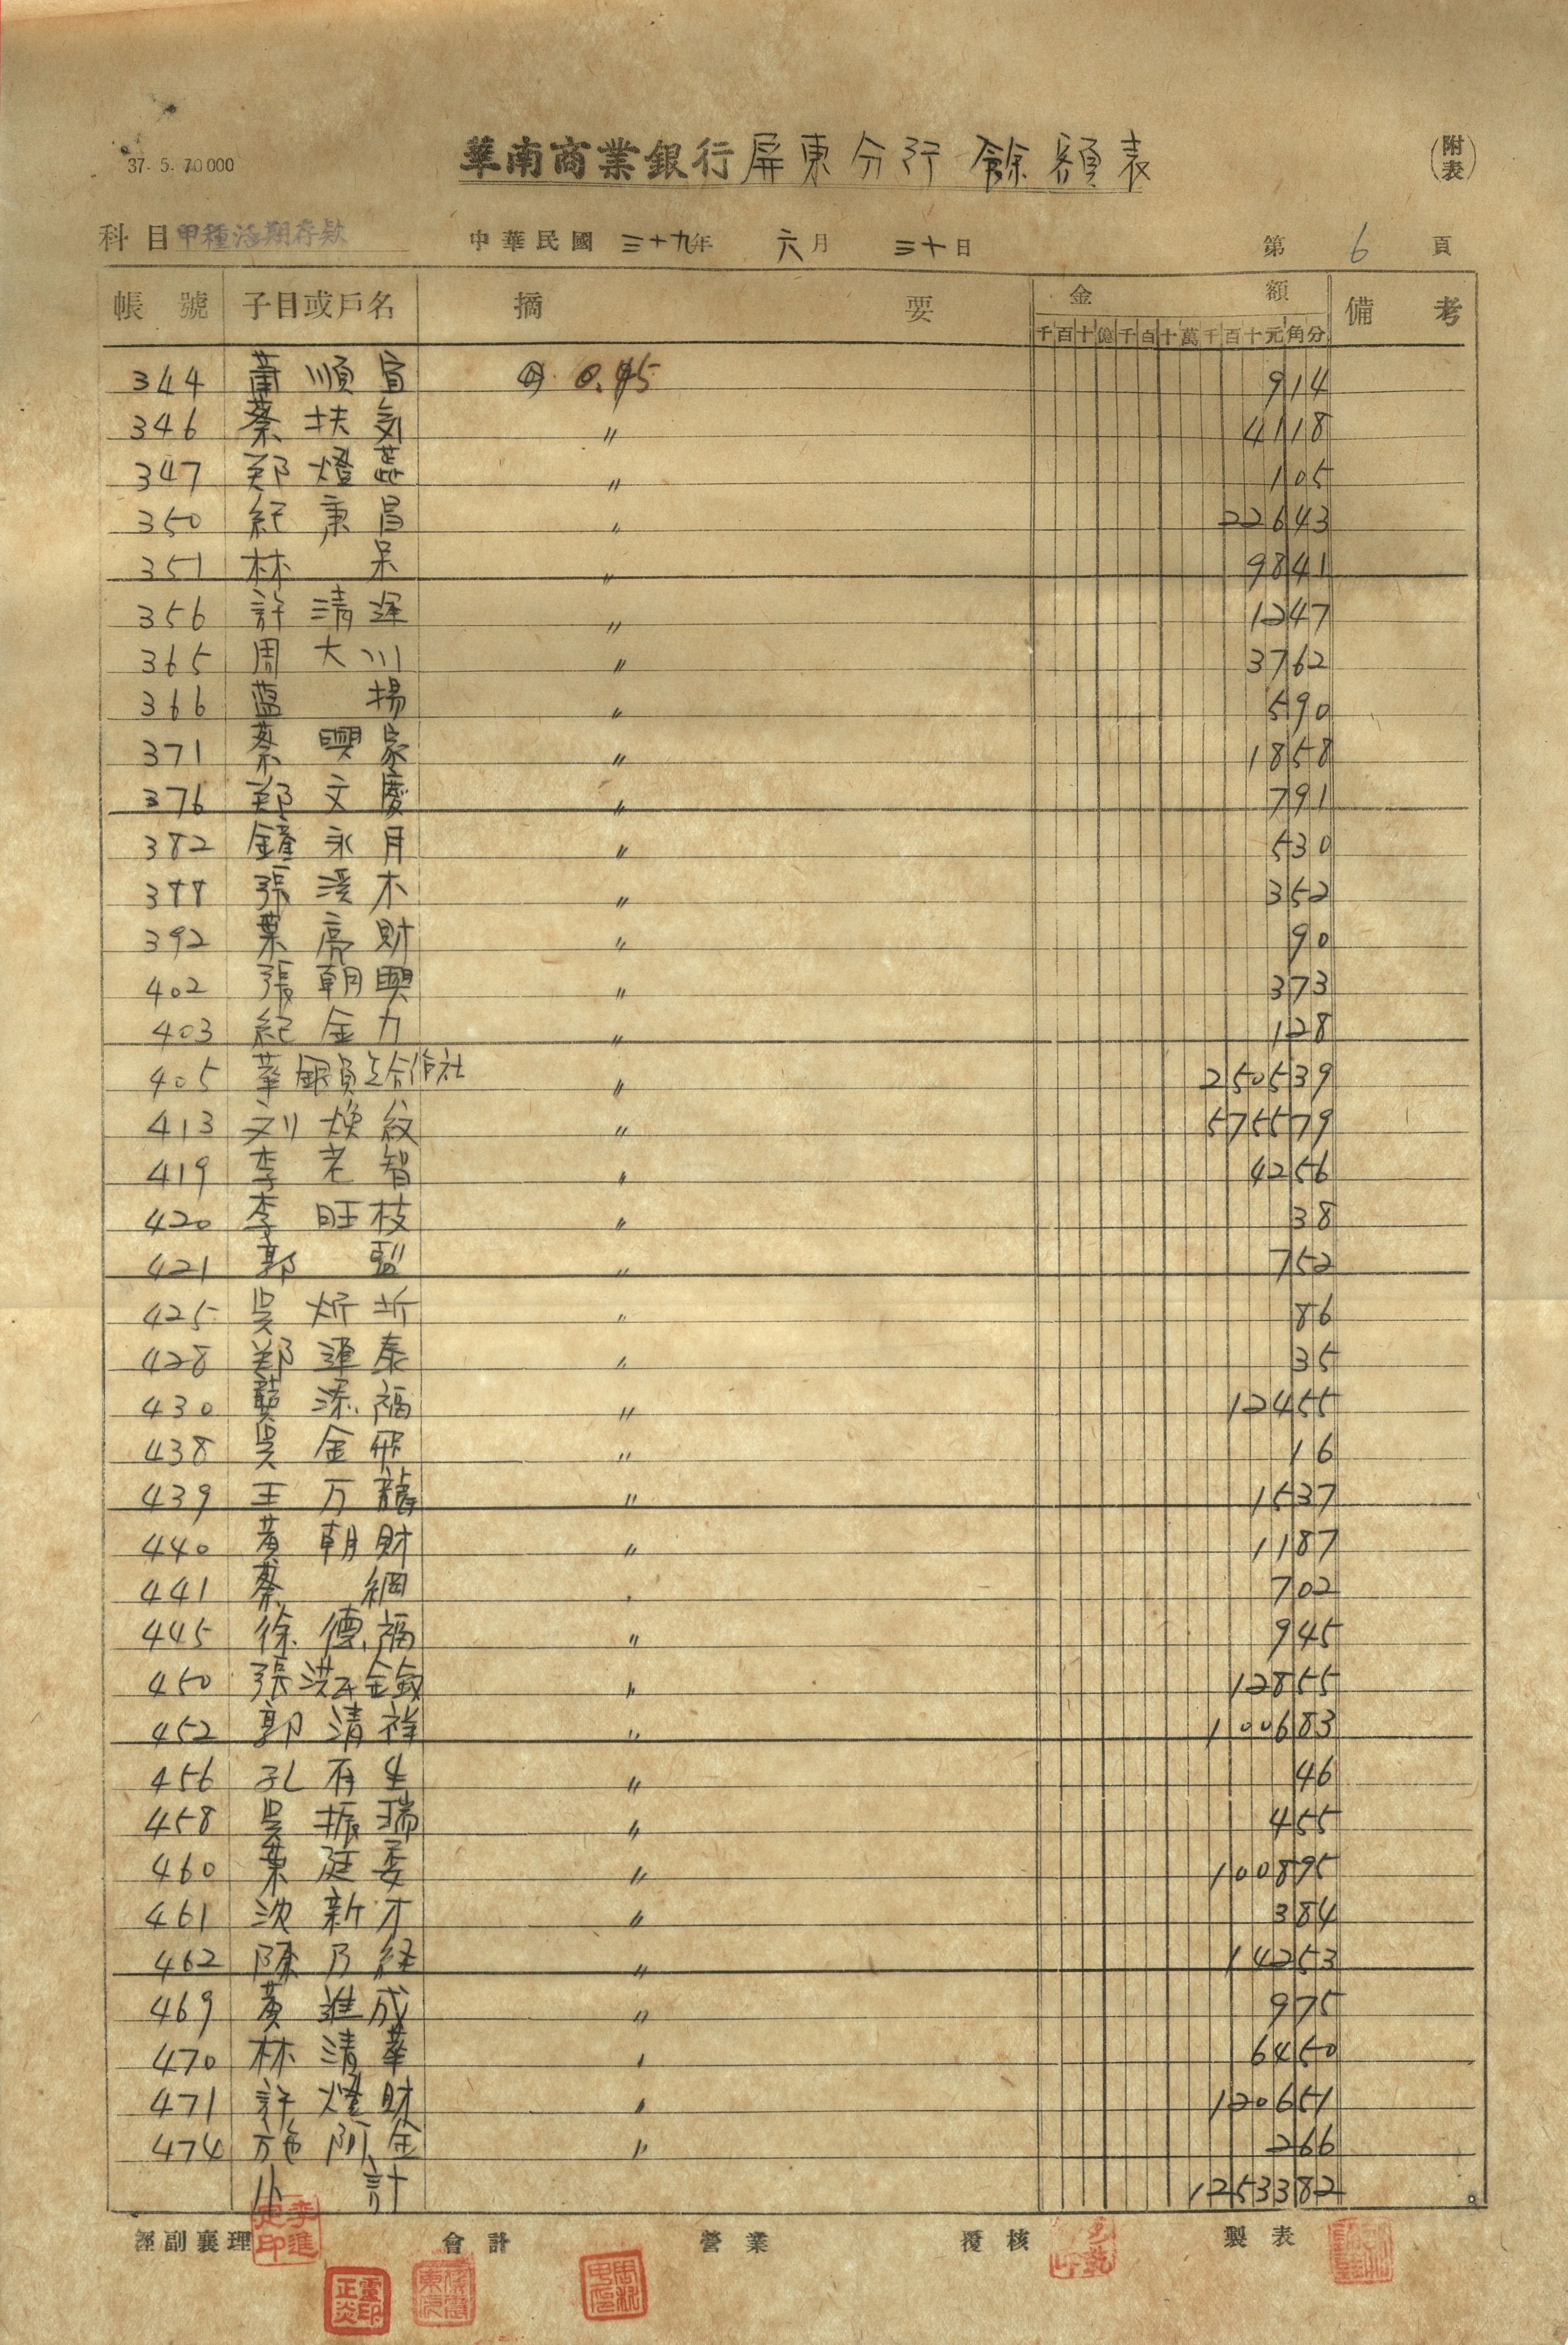 37. 5. 70000
華南商業銀行屏東分行餘額表
(附表)
科目甲種活期存款 中華民國三十九年六月三十日 第6頁
帳號 子目或戶名 摘要 金額 備考
千百十億千百十萬千百十元角分
344 蕭順宣 0.45 914
346 蔡扶気 〃 4118
347 郑燈 〃 105
350 紀秉昌 〃 22643
351 林呆 〃 9841
356 許清遅 〃 1247
365 周大川 〃 3762
366 藍揚 〃 590
371 蔡興家 〃 1858
376 郑文慶 〃 791
382 鐘永月 〃 530
388 張溪木 〃 352
392 葉亮財 〃 90
402 張朝興 〃 373
403 紀金力 〃 128
405 華銀員工合作社 〃 250539
413 刘焕紋 〃 575579
419 李老智 〃 4256
420 李旺枝 〃 38
421 郭 〃 752
425 吳炘 〃 86
428 郑連泰 〃 35
430 龔添福 〃 12455
438 吳金飛 〃 16
439 王万龍 〃 1537
440 黃朝財 〃 1187
441 蔡網 〃 702
445 徐德福 〃 945
450 張洪氏金 〃 12855
452 郭清祥 〃 100683
456 孔有生 〃 46
458 吳振瑞 〃 455
460 葉廷委 〃 100895
461 沈新才 〃 384
462 陳乃経 〃 14253
469 黃進成 〃 975
470 林清華 〃 6450
471 許燈財 〃 120651
474 施阿金 〃 266
小計 1253382
經副襄理 會計 營業 覆核 製表